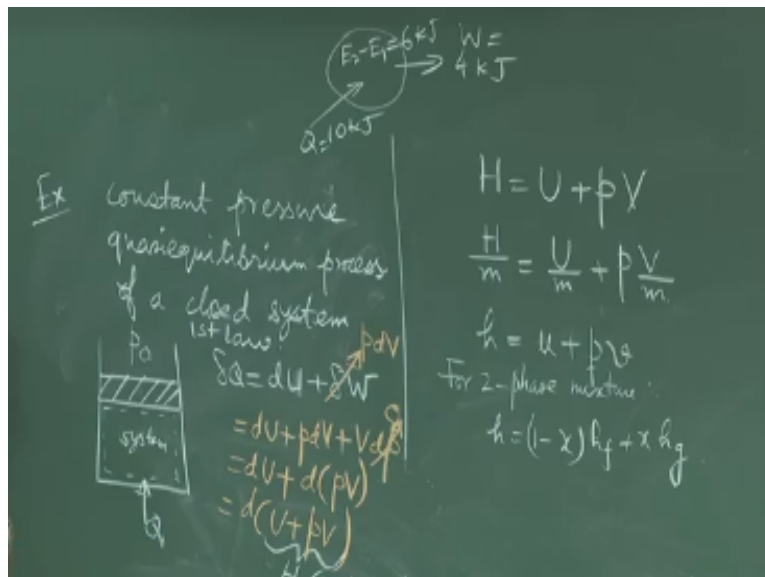 E₂-E₁=6kJ W=
4kJ
Q=10kJ
Ex constant pressure
quasiequilibrium process
of a closed system
1st law:
p₀
system
Q
pdV
δQ=dU+δW
0
=dU+pdV+Vdp
=dU+d(pV)
=d(U+pV)
H
H=U+pV
H/m = U/m + p V/m
h=u+pv
For 2-phase mixture:
h=(1-x)h_f+x h_g